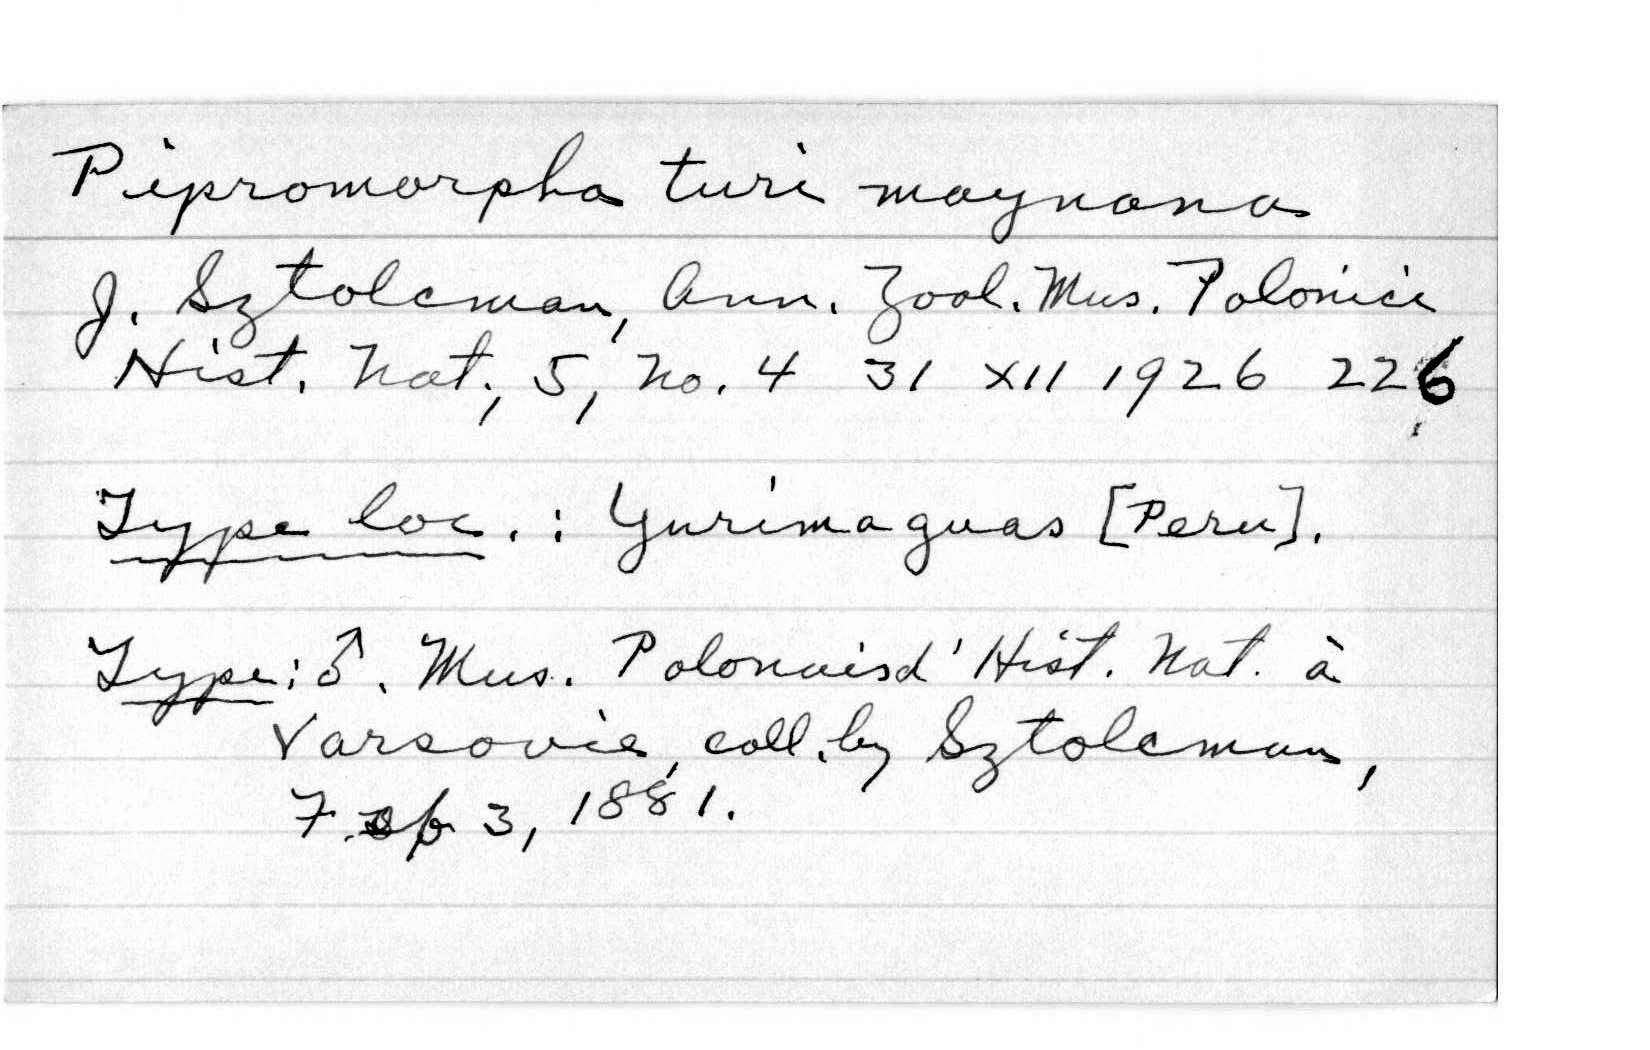 Pipromorpha turi maynana
J. Sztolcman, Ann. Zool. Mus. Polonici
Hist. Nat., 5, no. 4 31 XII 1926 226
Type loc.: Yurimaguas [Peru].
Type: ♂. Mus. Polonais d'Hist. Nat. à
Varsovie, coll. by Sztolcman,
3, 1881.